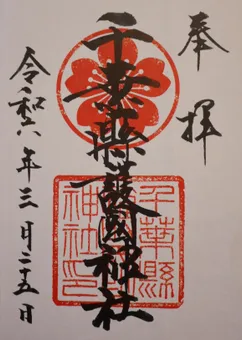 奉拝
千葉縣護國神社
千葉縣護國神社印
令和六年三月二十五日